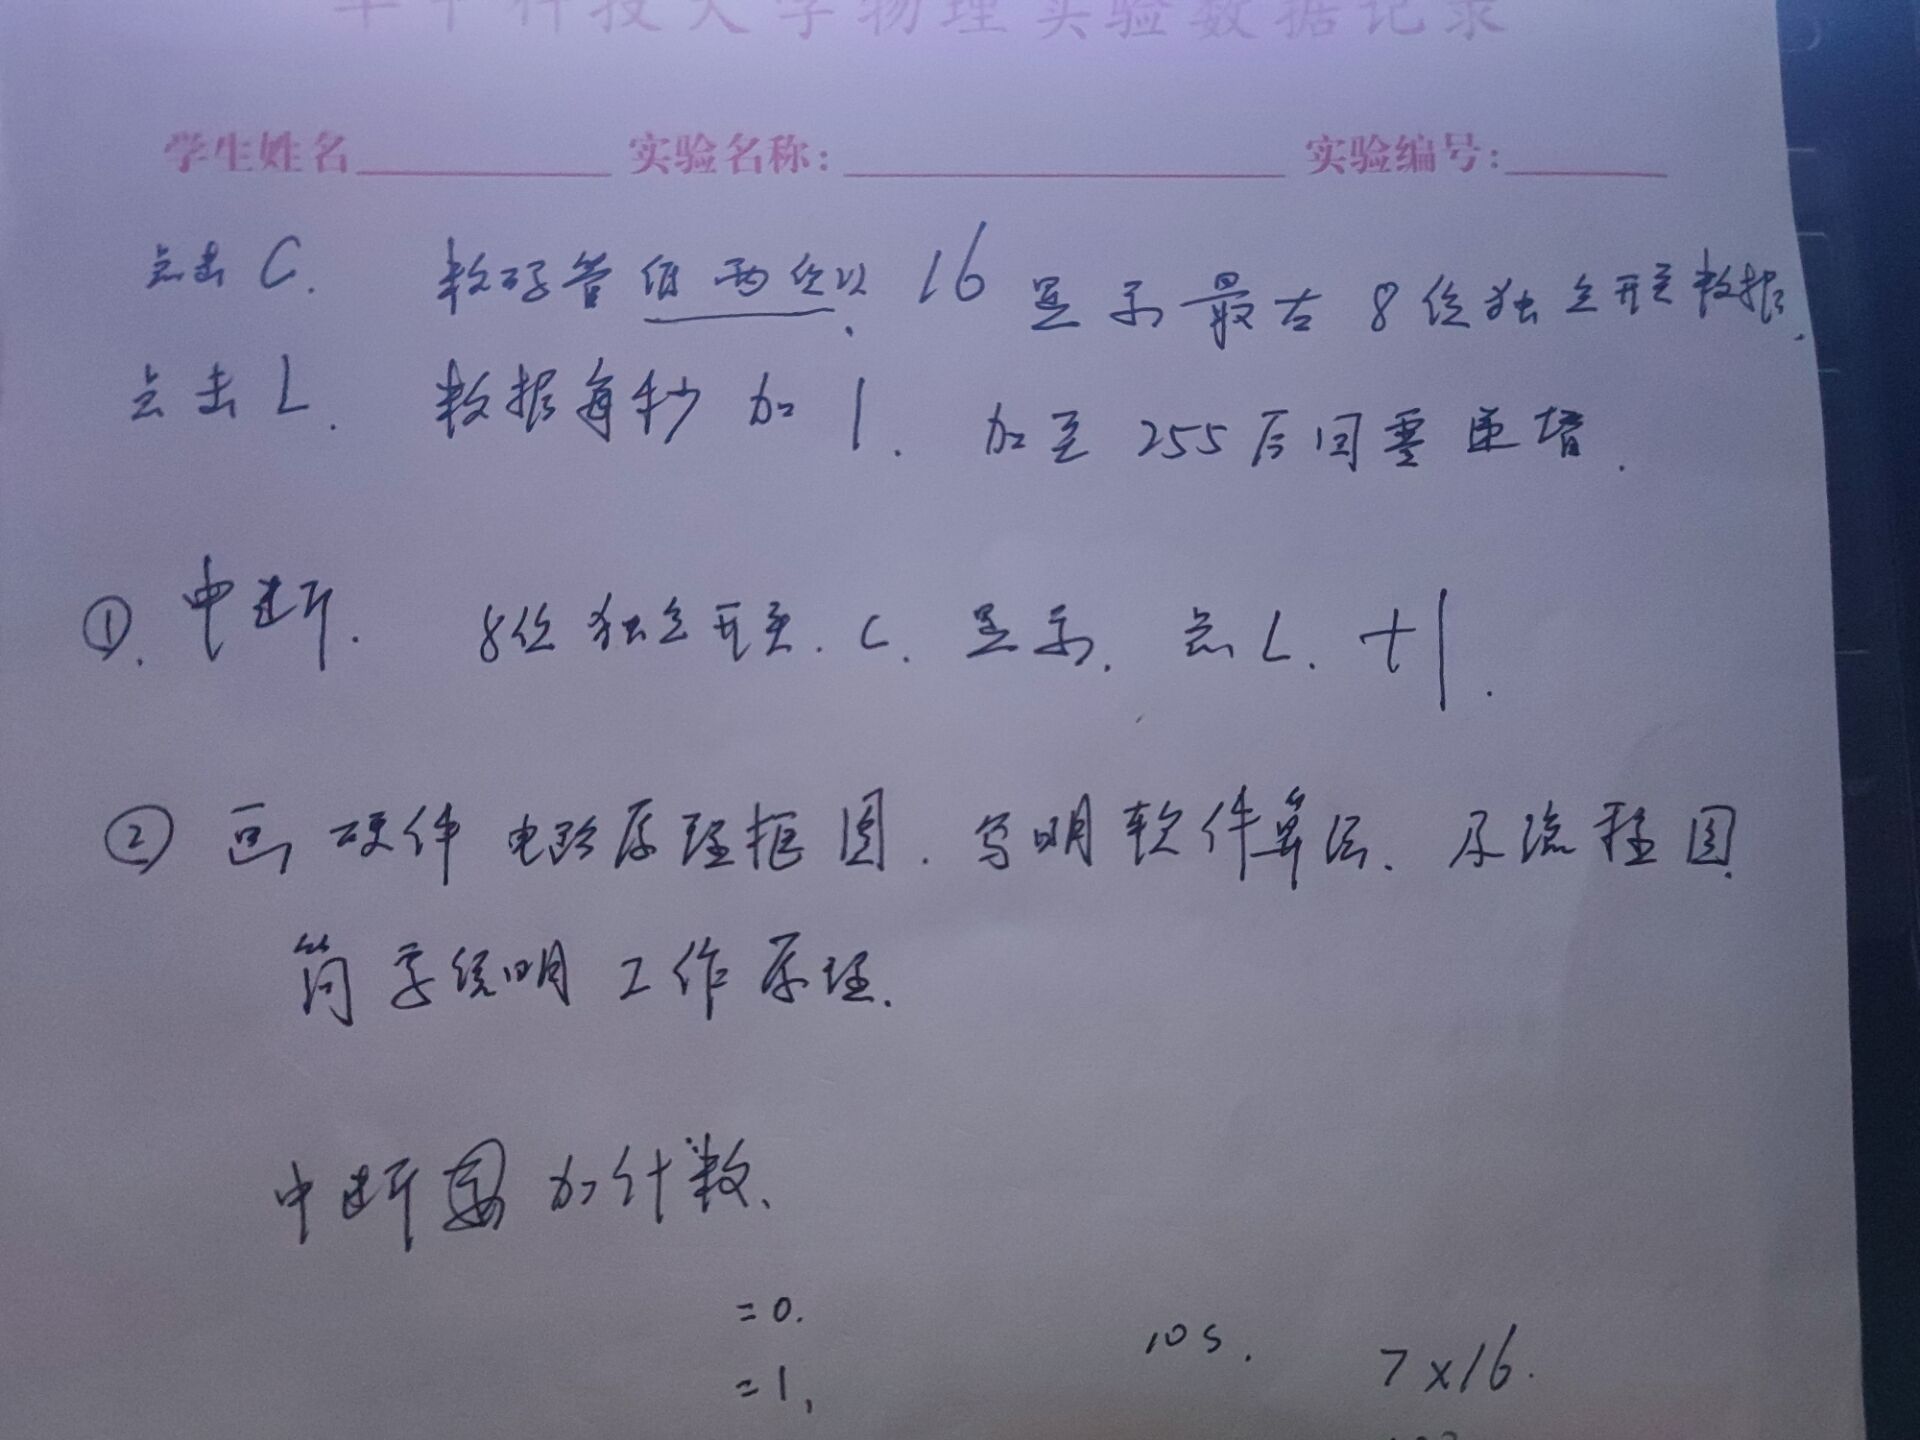 华中科技大学物理实验数据记录
学生姓名 实验名称: 实验编号:
点击 C. 数码管低两位以 16 显示最右 8 位独立开关数据.
点击 L. 数据每秒加 1. 加至 255 后回零递增.
①. 中断. 8位独立开关. C. 显示. 点 L. +1.
② 画硬件电路原理框图. 写明软件算法. 及流程图.
简要说明工作原理.
中断 加计数.
=0.
=1,
10s.
7×16.